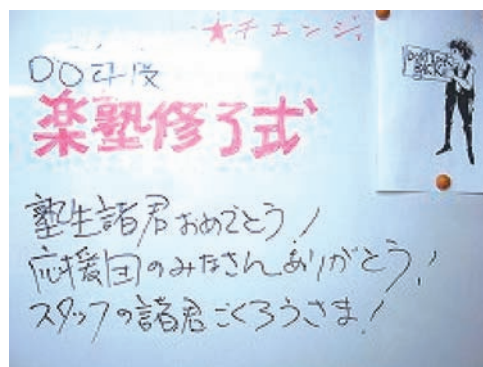 ★チエンジ
楽塾修了式
塾生諸君おめでとう!
応援団のみなさんありがとう!
スタッフの諸君ごくろうさま!
DON'T LOOK
BACK!